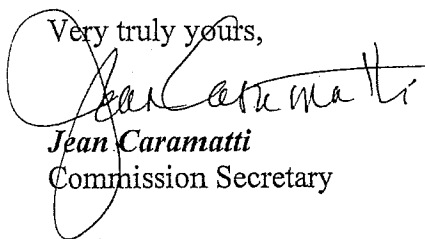 Very truly yours,
Jean Caramatti
Jean Caramatti
Commission Secretary